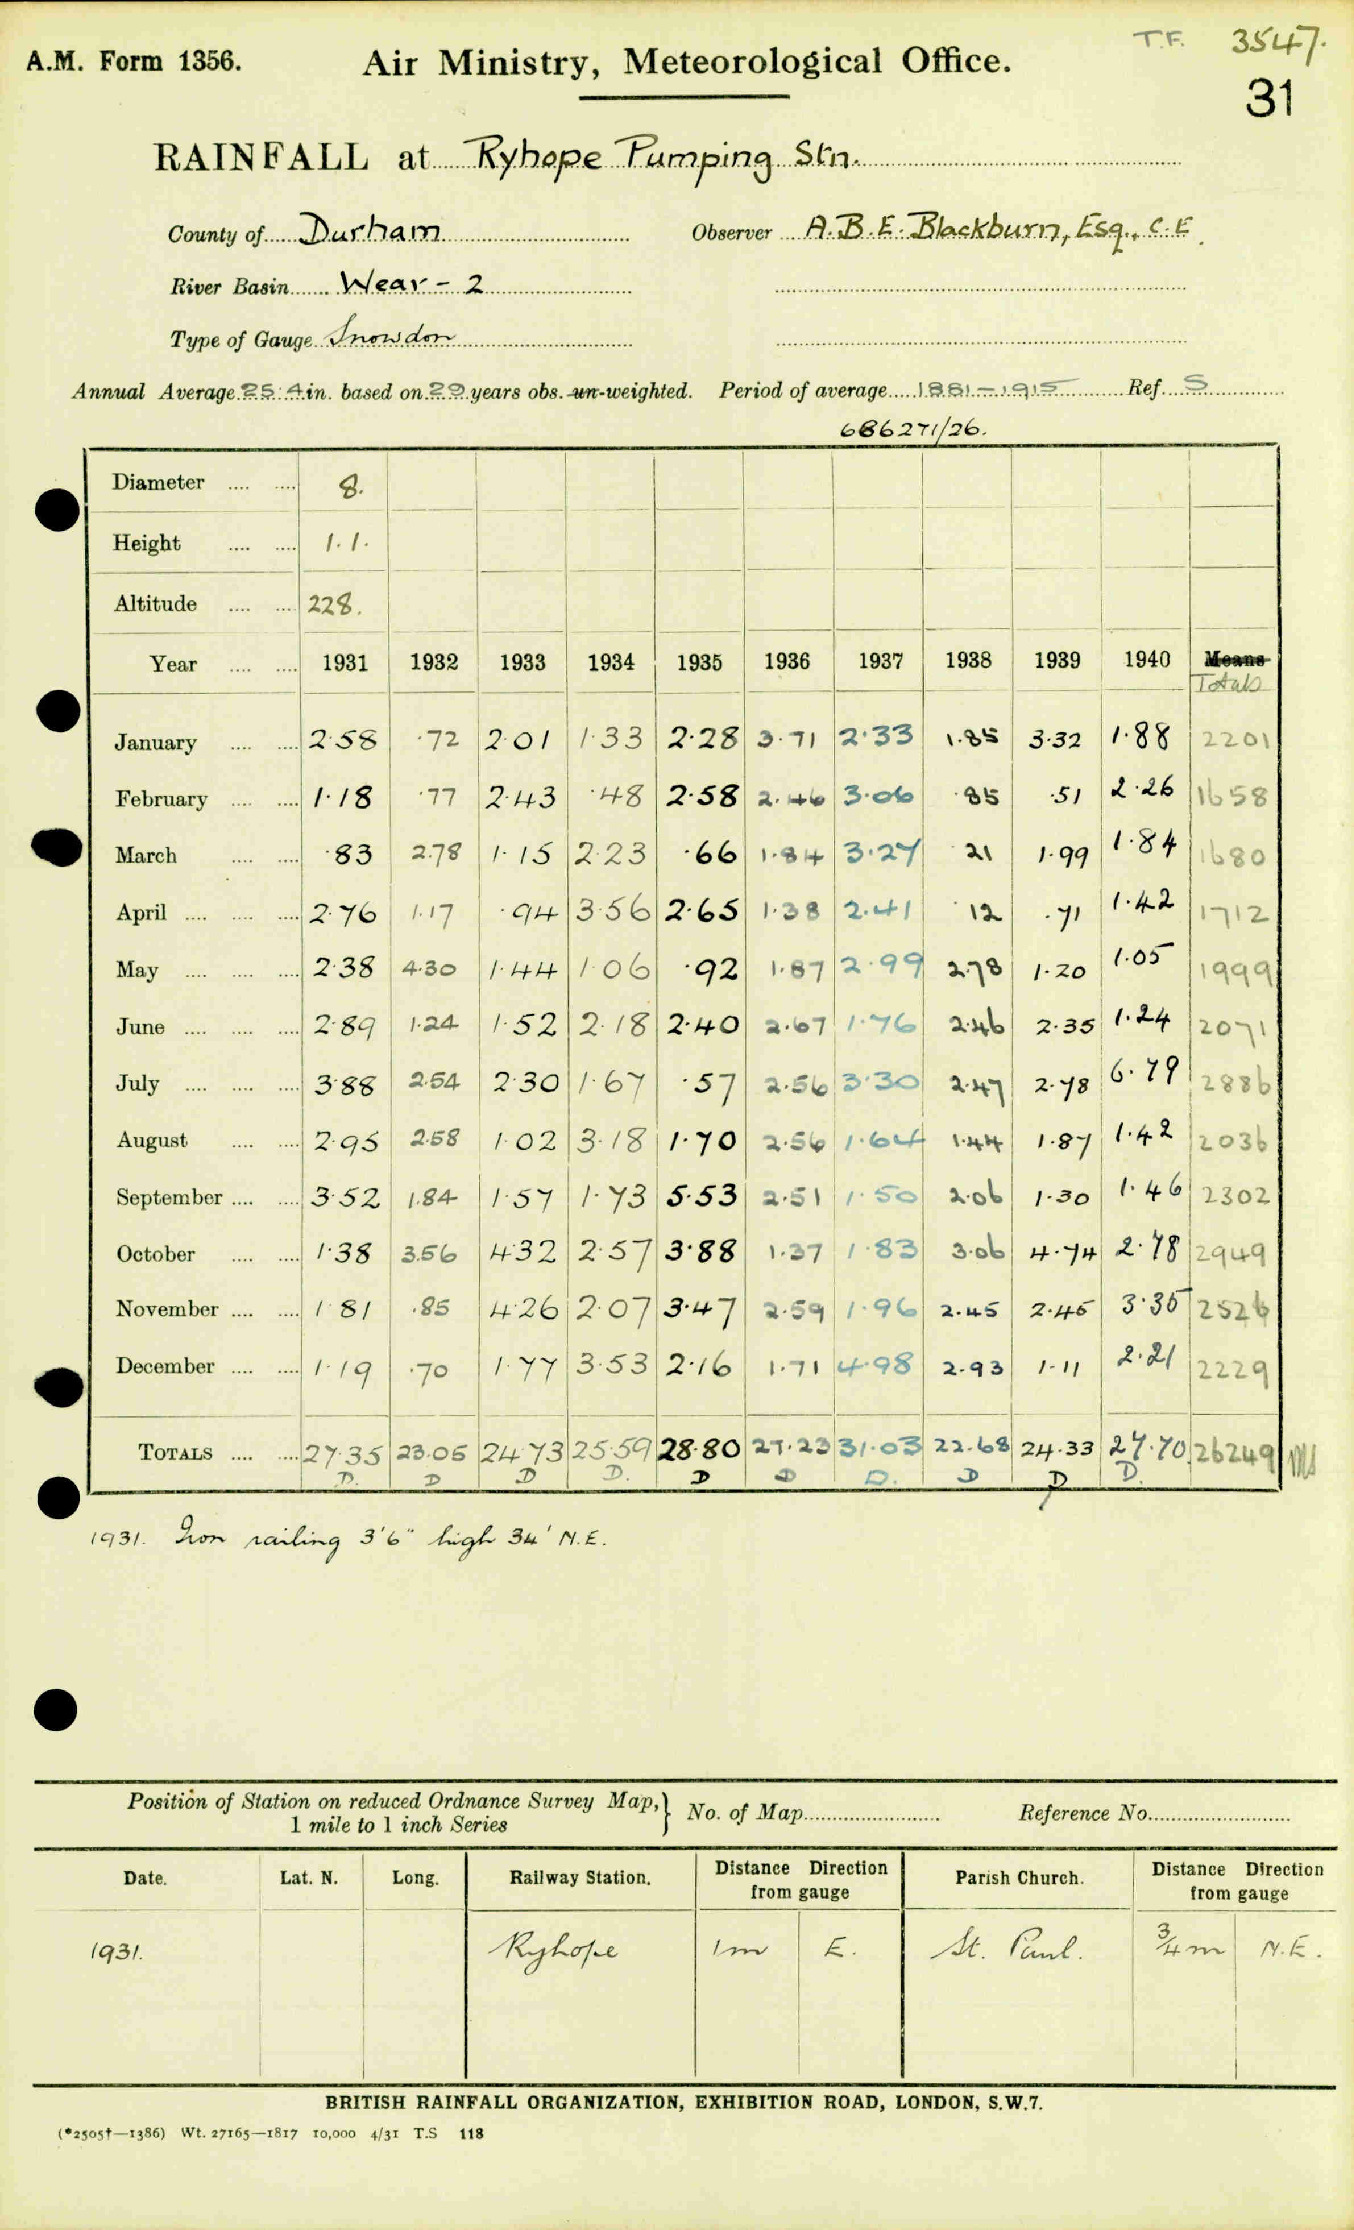 T.F. 3547.
A.M. Form 1356. Air Ministry, Meteorological Office.
31
RAINFALL at Ryhope Pumping Stn.
County of Durham Observer A.B.E. Blackburn, Esq., C.E.
River Basin Wear - 2
Type of Gauge Snowdon
Annual Average 25.4 in. based on 29 years obs. un-weighted. Period of average 1881-1915 Ref. S
686271/26.
Diameter .... .... 8.
Height .... .... 1.1.
Altitude .... .... 228.
Year .... .... 1931 1932 1933 1934 1935 1936 1937 1938 1939 1940 Means
Totals
January .... .... 2.58 .72 2.01 1.33 2.28 3.71 2.33 1.85 3.32 1.88 2201
February .... .... 1.18 .77 2.43 .48 2.58 2.46 3.06 .85 .51 2.26 1658
March .... .... .83 2.78 1.15 2.23 .66 1.84 3.27 .21 1.99 1.84 1680
April .... .... .... 2.76 1.17 .94 3.56 2.65 1.38 2.41 .12 .71 1.42 1712
May .... .... .... 2.38 4.30 1.44 1.06 .92 1.87 2.99 2.78 1.20 1.05 1999
June .... .... .... 2.89 1.24 1.52 2.18 2.40 2.67 1.76 2.46 2.35 1.24 2071
July .... .... .... 3.88 2.54 2.30 1.67 .57 2.56 3.30 2.47 2.78 6.79 2886
August .... .... 2.95 2.58 1.02 3.18 1.70 2.56 1.64 1.44 1.87 1.42 2036
September .... .... 3.52 1.84 1.57 1.73 5.53 2.51 1.50 2.06 1.30 1.46 2302
October .... .... 1.38 3.56 4.32 2.57 3.88 1.37 1.83 3.06 4.74 2.78 2949
November .... .... 1.81 .85 4.26 2.07 3.47 2.59 1.96 2.45 2.45 3.35 2526
December .... .... 1.19 .70 1.77 3.53 2.16 1.71 4.98 2.93 1.11 2.21 2229
TOTALS .... .... 27.35 23.05 24.73 25.59 28.80 27.23 31.03 22.68 24.33 27.70 26249
D. D D D. D D D. D D D.
1931. Iron railing 3'6" high 34' N.E.
Position of Station on reduced Ordnance Survey Map, } No. of Map Reference No.
1 mile to 1 inch Series
Date. Lat. N. Long. Railway Station. Distance Direction from gauge Parish Church. Distance Direction from gauge
1931. Ryhope 1m E. St. Paul. 3/4 m N.E.
BRITISH RAINFALL ORGANIZATION, EXHIBITION ROAD, LONDON, S.W.7.
(*2505†—1386) Wt. 27165—1817 10,000 4/31 T.S 118